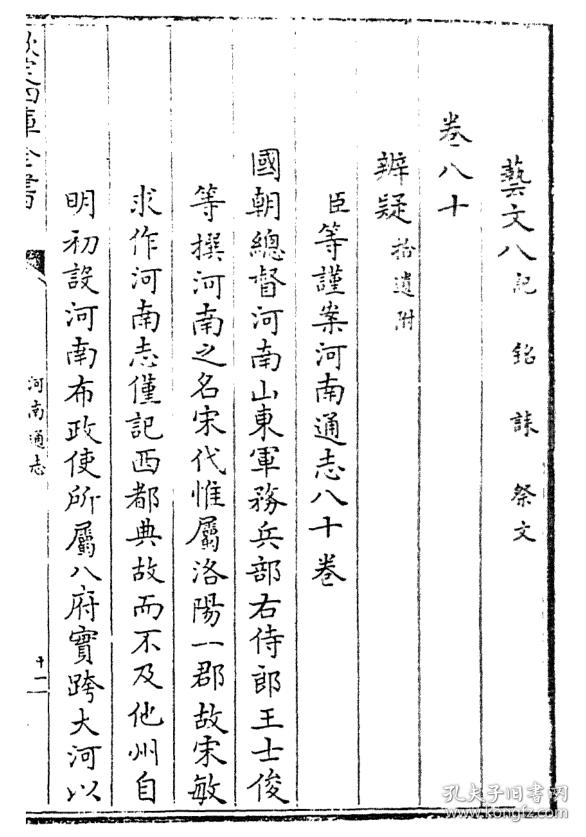 藝文八記 銘 誄 祭文
卷八十
辨疑拾遺附
臣等謹案河南通志八十卷
國朝總督河南山東軍務兵部右侍郎王士俊
等撰河南之名宋代惟屬洛陽一郡故宋敏
求作河南志僅記西都典故而不及他州自
明初設河南布政使所屬八府實跨大河以
欽定四庫全書
河南通志
十一
孔夫子旧书网
www.kongfz.com